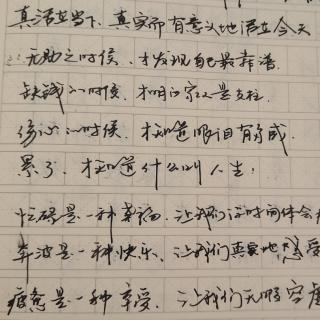 真活在当下、真实而有意义地活在今天
无助之时候、才发现自己最靠谱
缺钱的时候、才明白家人是支柱
伤心的时候、才知道眼泪有多咸
累了、才知道什么叫人生!
忙碌是一种幸福、让我们没时间体会
奔波是一种快乐、让我们真实地感受
疲惫是一种享受、让我们无暇空虚